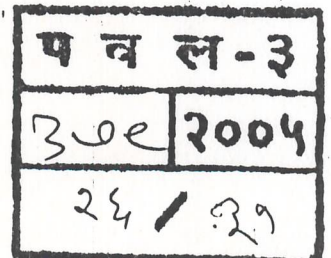 प व ल - ३
२००५
२६ / ३१